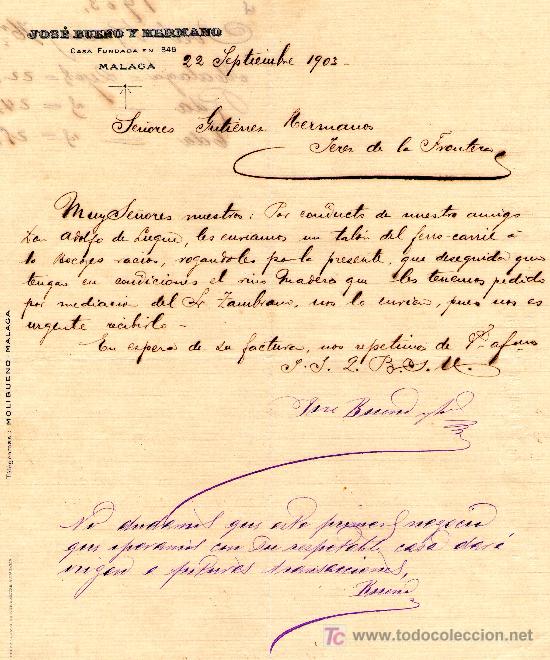 JOSÉ BUENO Y HERMANO
CASA FUNDADA EN 848
MALAGA
22 Septiembre 1903-
Señores Gutierrez Hermanos
Jerez de la Frontera
Muy Señores nuestros: Por conducto de nuestro amigo
Don Adolfo de Luque, les enviamos un talon del ferro-carril de
rogandoles por la presente, que deseguida que
tengan en condiciones el vino Madera que les tenemos pedido
por mediacion del Sr Zambrano, nos lo envien, pues nos es
urgente recibirlo-
En espera de su factura, nos repetimos de Vs. afmos
S. S. Q. B. S. M.
Jose Bueno y
No dudamos que este primer negocio
que operamos con su respetable casa dará
origen a futuras transacciones,
Bueno
Telegramas: MOLIBUENO MALAGA
TC www.todocoleccion.net